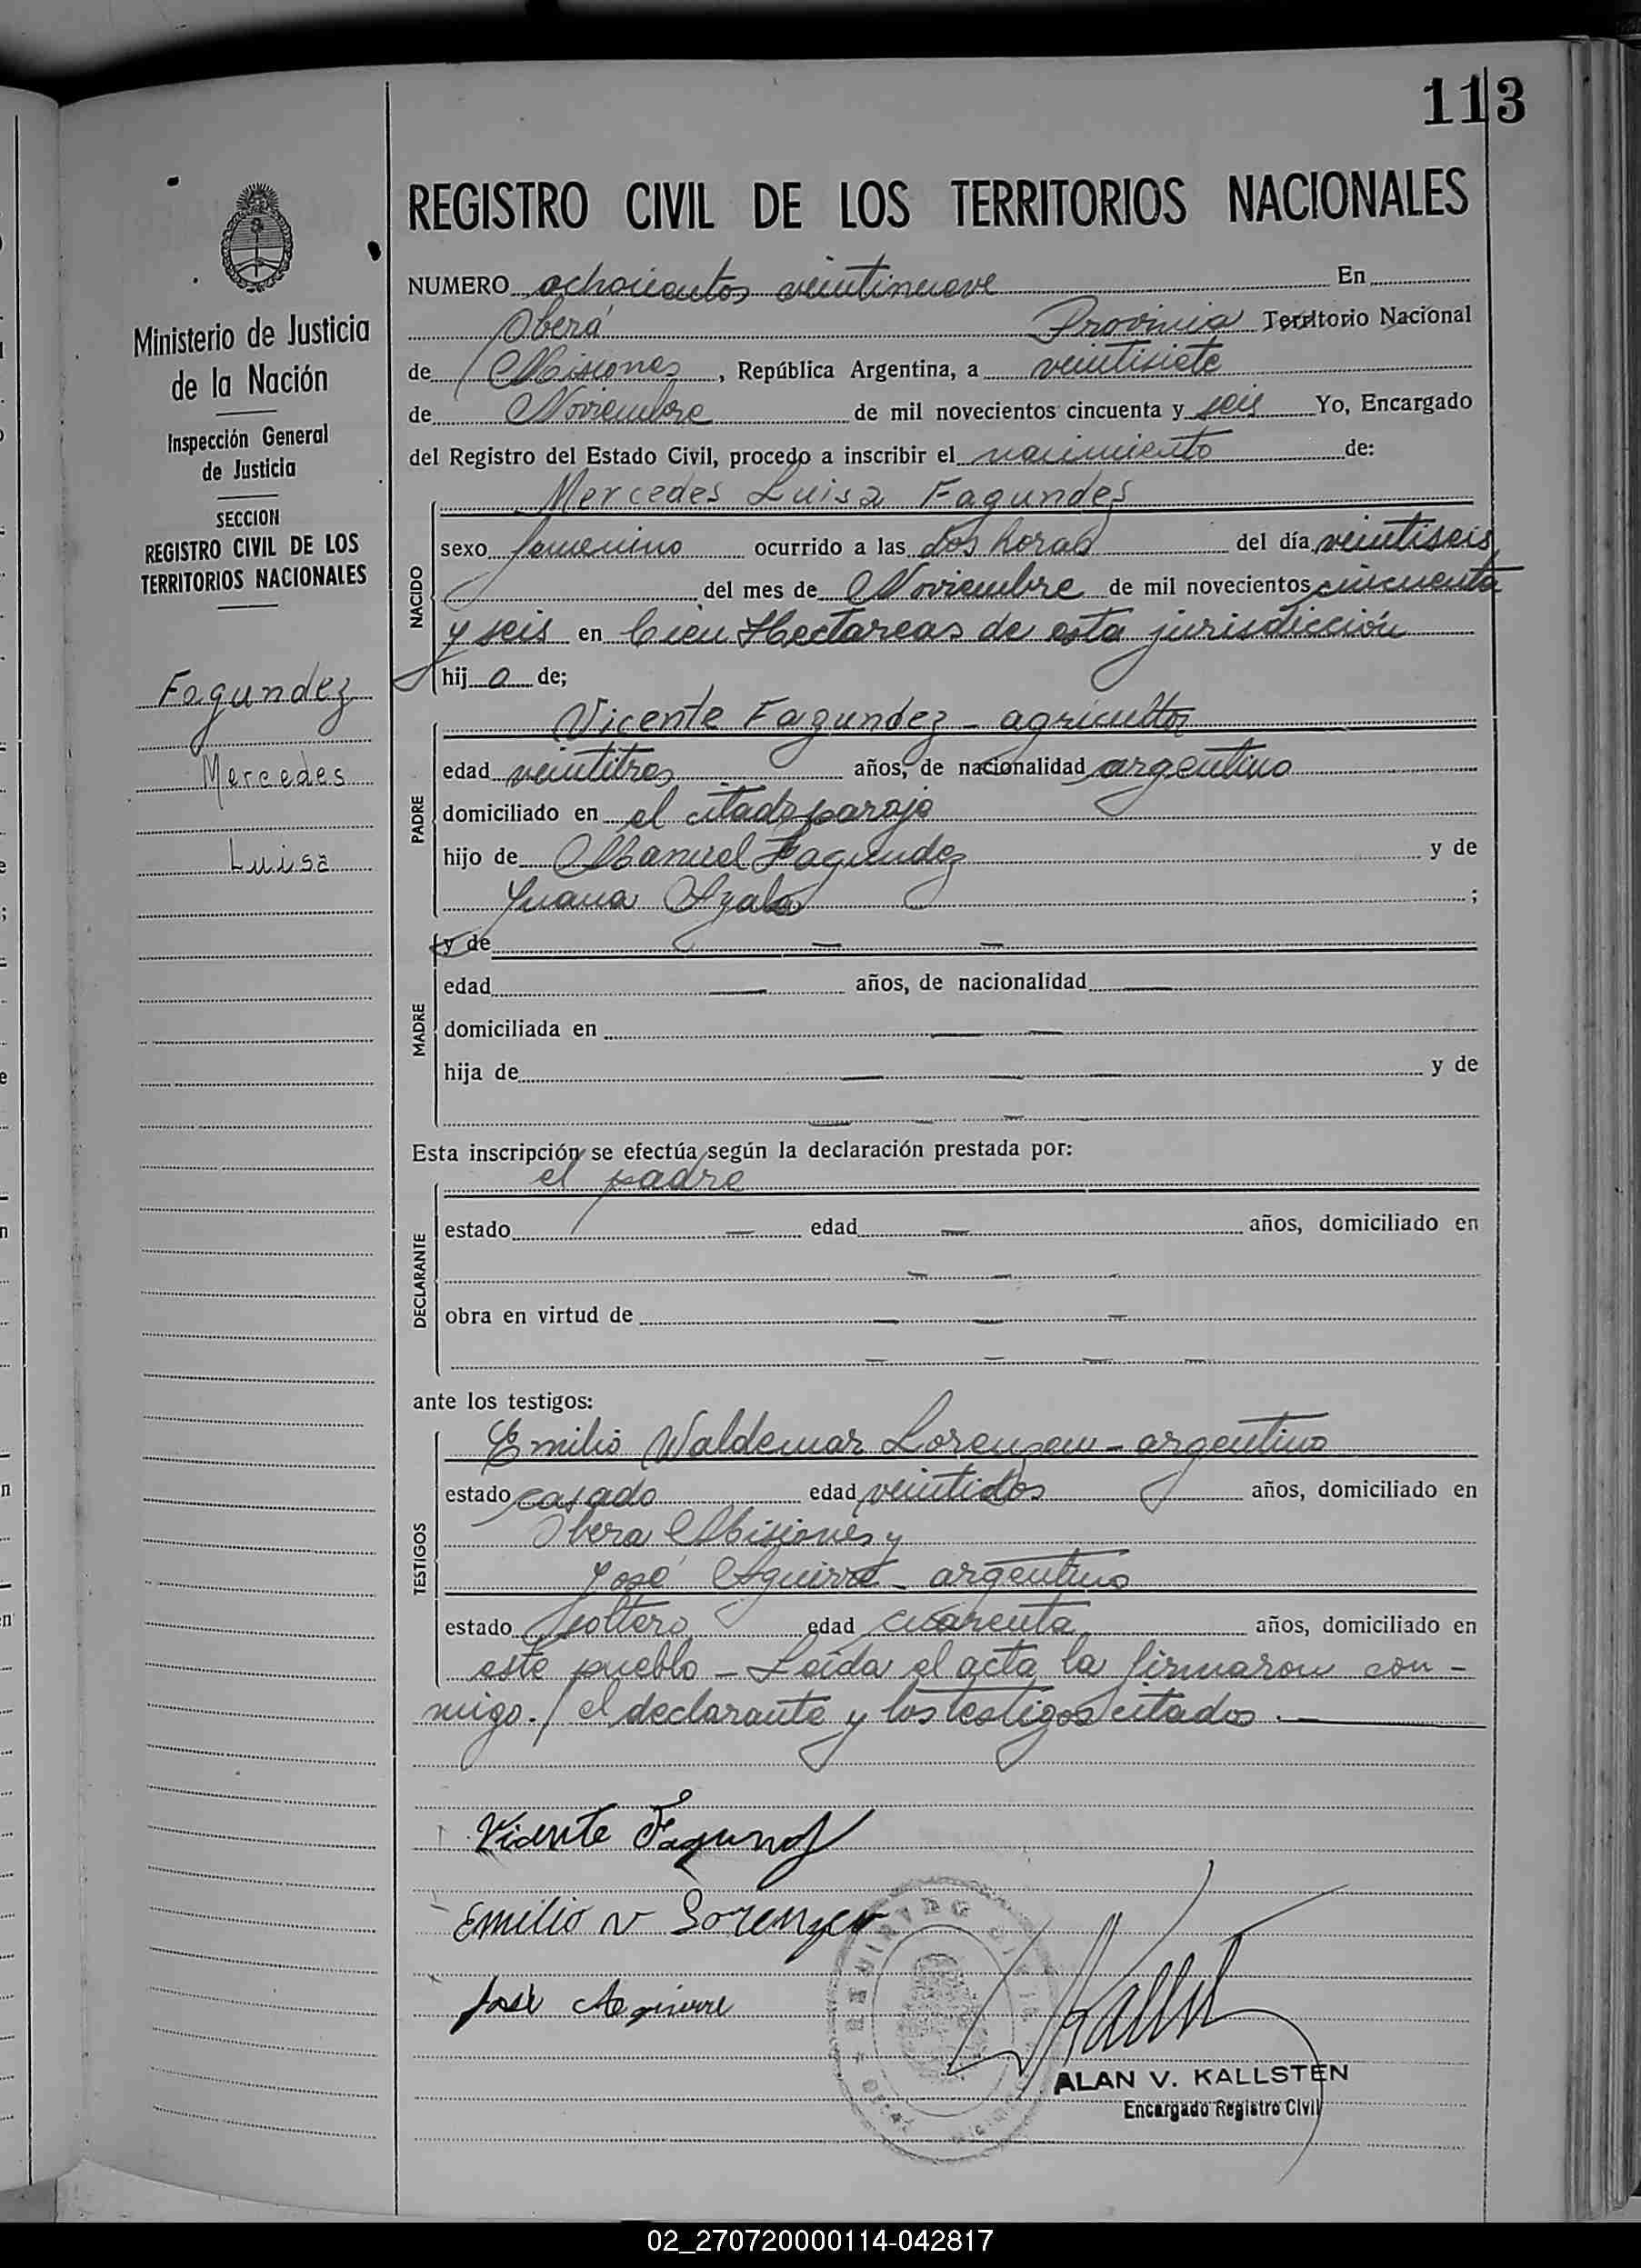 113
REGISTRO CIVIL DE LOS TERRITORIOS NACIONALES
Ministerio de Justicia
de la Nación
Inspección General
de Justicia
SECCION
REGISTRO CIVIL DE LOS
TERRITORIOS NACIONALES
Fagundez
Mercedes
Luisa
NUMERO ochocientos veintinueve En
Oberá Provincia Territorio Nacional
de Misiones, República Argentina, a veintisiete
de Noviembre de mil novecientos cincuenta y seis Yo, Encargado
del Registro del Estado Civil, procedo a inscribir el nacimiento de:
Mercedes Luisa Fagundes
NACIDO
sexo femenino ocurrido a las dos horas del día veintiseis
del mes de Noviembre de mil novecientos cincuenta
y seis en Cien Hectareas de esta jurisdicción
hij a de;
PADRE
Vicente Fagundez - agricultor
edad veintitres años, de nacionalidad argentino
domiciliado en el citado paraje
hijo de Manuel Fagundez y de
Juana ;
MADRE
y de
edad años, de nacionalidad
domiciliada en
hija de y de
Esta inscripción se efectúa según la declaración prestada por:
DECLARANTE
el padre
estado edad años, domiciliado en
obra en virtud de
ante los testigos:
TESTIGOS
Emilio Waldemar Lorenzen - argentino
estado casado edad veintidos años, domiciliado en
Obera Misiones y
José Aguirre - argentino
estado soltero edad cuarenta años, domiciliado en
este pueblo - Leída el acta la firmaron con-
migo. el declarante y los testigos citados.
Vicente Fagund
Emilio W Lorenzen
José Aguirre
ALAN V. KALLSTEN
Encargado Registro Civil
02_270720000114-042817